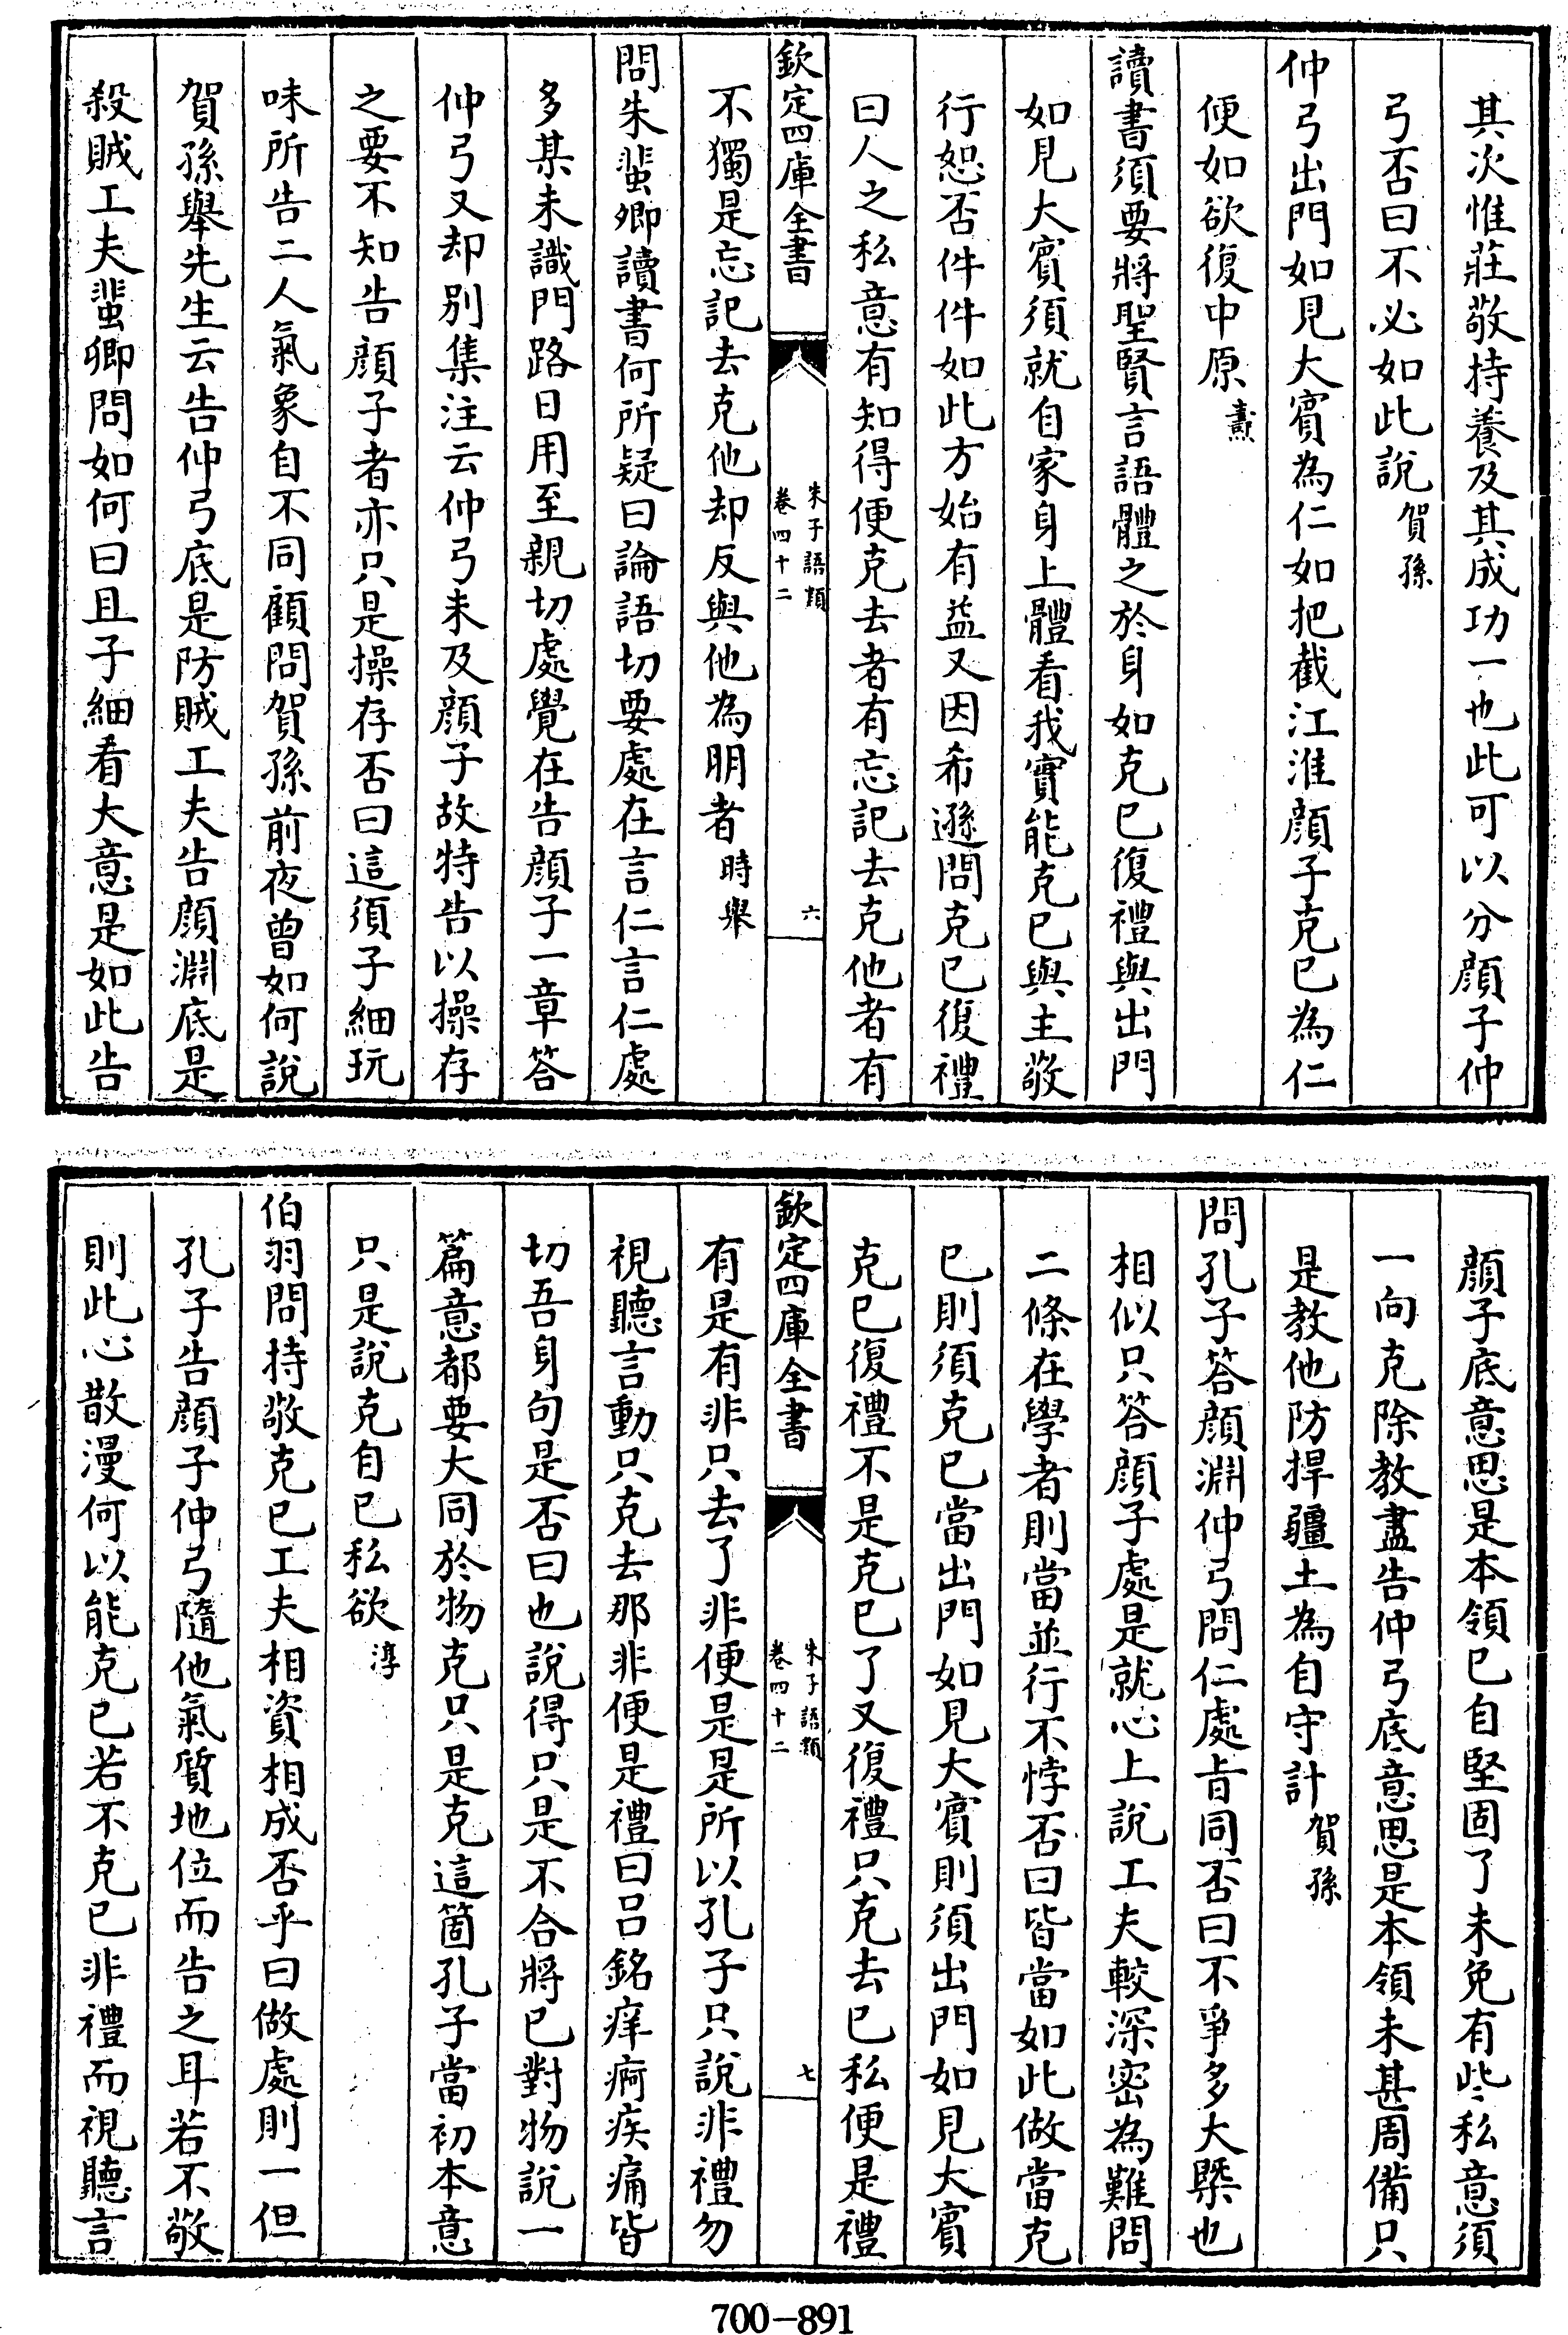 其次惟莊敬持養及其成功一也此可以分顔子仲
弓否曰不必如此說賀孫
仲弓出門如見大賓為仁如把截江淮顔子克己為仁
便如欲復中原燾
讀書須要將聖賢言語體之於身如克己復禮與出門
如見大賓須就自家身上體看我實能克己與主敬
行恕否件件如此方始有益又因希遜問克己復禮
曰人之私意有知得便克去者有忘記去克他者有
欽定四庫全書
朱子語類
卷四十二
六
不獨是忘記去克他却反與他為朋者時舉
問朱蜚卿讀書何所疑曰論語切要處在言仁言仁處
多某未識門路日用至親切處覺在告顔子一章答
仲弓又却别集注云仲弓未及顔子故特告以操存
之要不知告顔子者亦只是操存否曰這須子細玩
味所告二人氣象自不同顧問賀孫前夜曾如何說
賀孫舉先生云告仲弓底是防賊工夫告顔淵底是
殺賊工夫蜚卿問如何曰且子細看大意是如此告
顔子底意思是本領已自堅固了未免有些私意須
一向克除教盡告仲弓底意思是本領未甚周備只
是教他防捍疆土為自守計賀孫
問孔子答顔淵仲弓問仁處旨同否曰不爭多大槩也
相似只答顔子處是就心上說工夫較深密為難問
二條在學者則當並行不悖否曰皆當如此做當克
己則須克己當出門如見大賓則須出門如見大賓
克己復禮不是克己了又復禮只克去己私便是禮
欽定四庫全書
朱子語類
卷四十二
七
有是有非只去了非便是是所以孔子只說非禮勿
視聽言動只克去那非便是禮曰吕銘痒痾疾痛皆
切吾身句是否曰也說得只是不合將己對物說一
篇意都要大同於物克只是克這箇孔子當初本意
只是說克自己私欲淳
伯羽問持敬克己工夫相資相成否乎曰做處則一但
孔子告顔子仲弓隨他氣質地位而告之耳若不敬
則此心散漫何以能克己若不克己非禮而視聽言
700-891